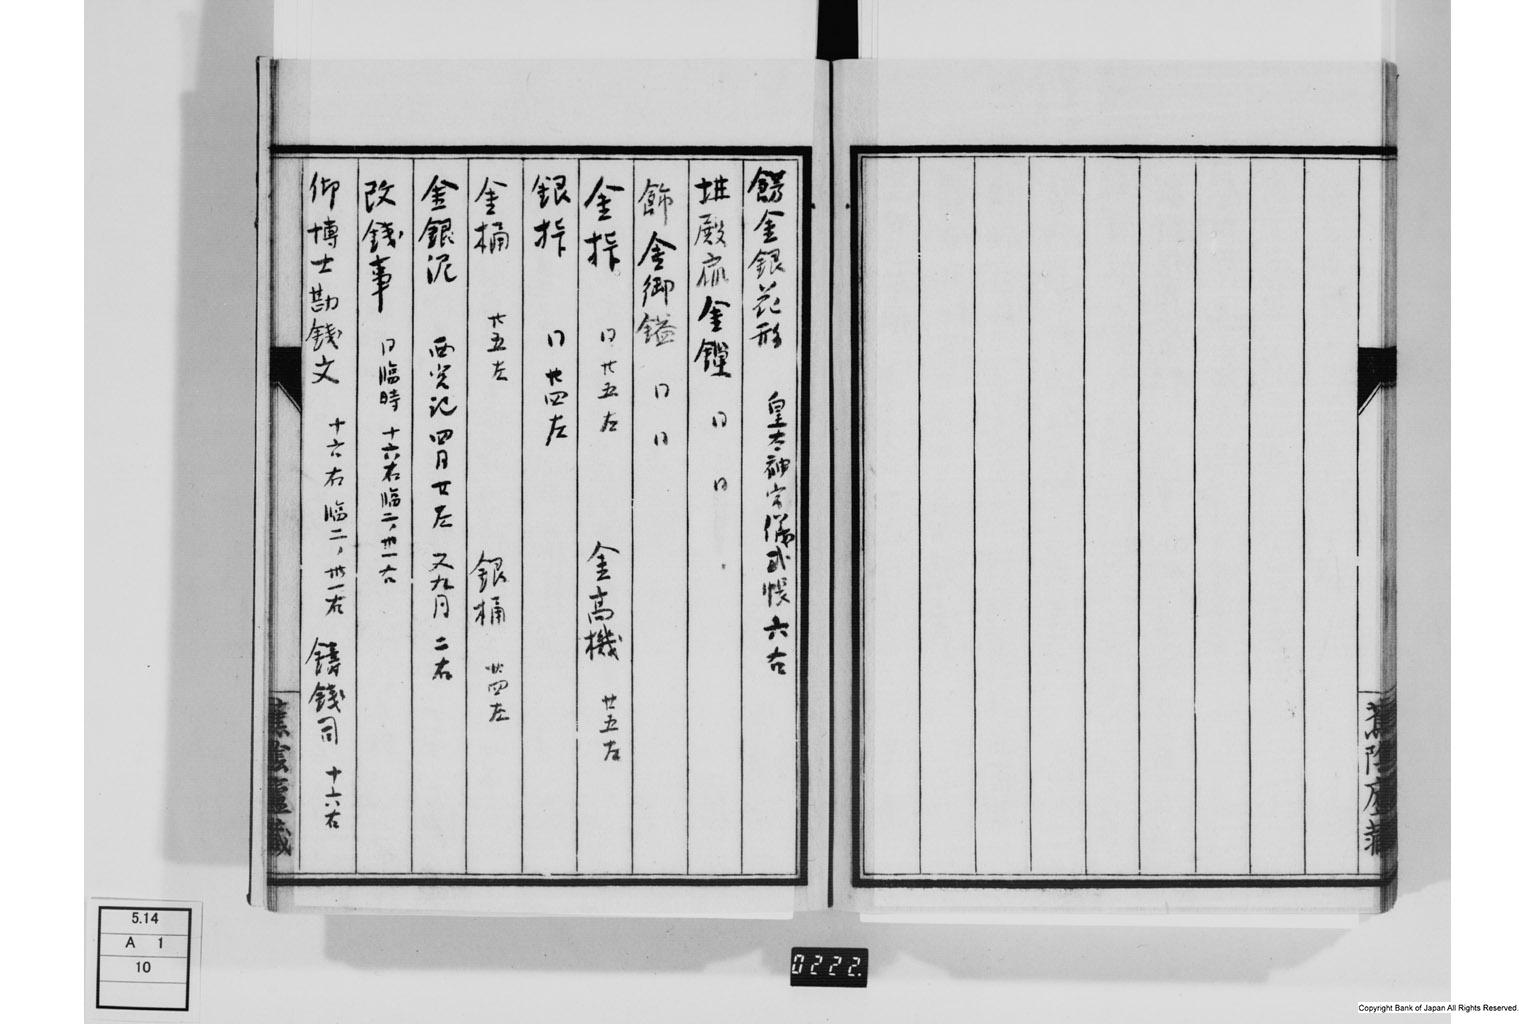 餝金銀花形 皇太神宮儀式帳 六右
殿 金鐉 口 口
飾金御鎰 口 口
金桙 口廿五左 金高機 廿五左
銀桙 口廿四左
金桶 廿五左 銀桶 廿四左
金銀泥 西宮記四月廿左 又九月二右
改錢事 口臨時 十六右臨二、卅一右
仰博士勘錢文 十六右臨二、卅一右 鑄錢司 十六右
蕉陰廬藏
蕉陰廬藏
5.14
A 1
10
0222.
Copyright Bank of Japan All Rights Reserved.